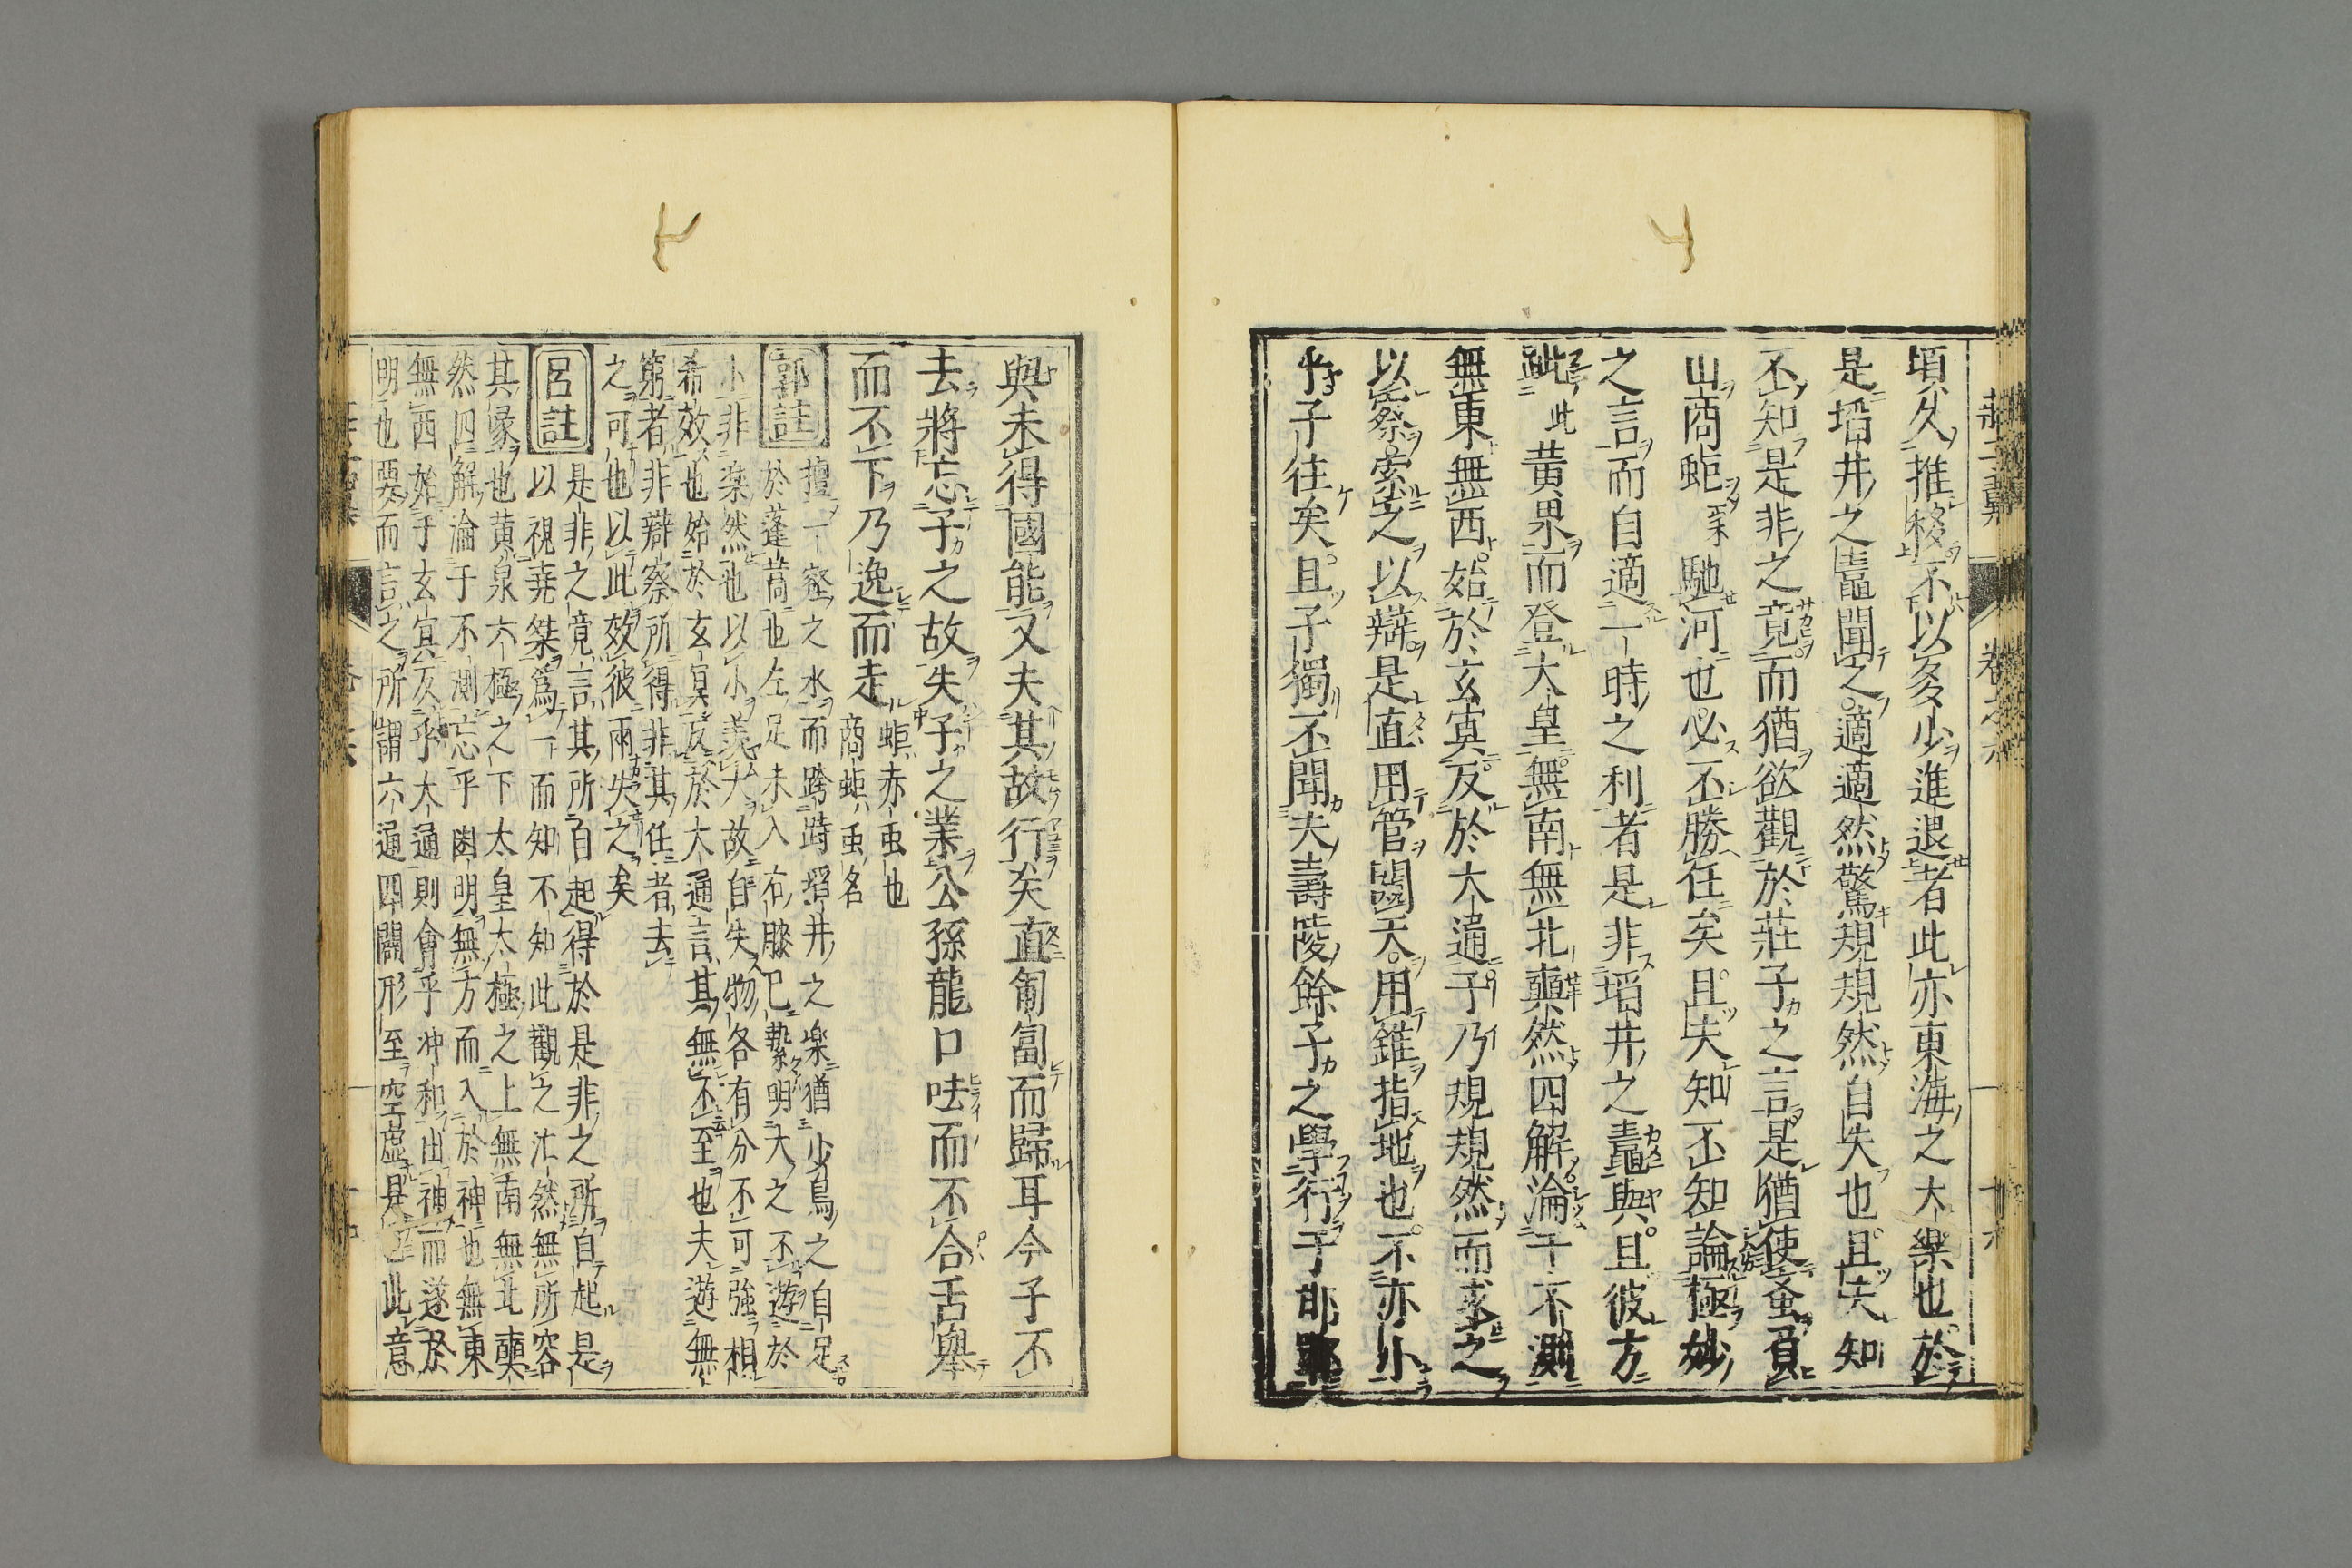 頃久推移不以多少進退者此亦東海之大樂也於
是埳井之鼃聞之適適然驚規規然自失也且夫知
不知是非之竟而猶欲觀於莊子之言是猶使蚉負
山商蚷馳河也必不勝任矣且夫知不知論極妙
之言而自適一時之利者是非埳井之鼃與且彼方
跐此黄泉而登大皇無南無北奭然四解淪于不測
無東無西始於玄冥反於大通子乃規規然而求之
以察索之以辯是直用管闚天用錐指地也不亦小
乎子往矣且子獨不聞夫壽陵餘子之學行于邯鄲
卷之六
與未得國能又失其故行矣直匍匐而歸耳今子不
去將忘子之故失子之業公孫龍口呿而不合舌舉
而不下乃逸而走
蚷赤蟲也
商蚷蟲名
郭註
擅一壑之水而跨跱埳井之樂猶小鳥之自足
於蓬蒿也左足未入右膝已縶明大之不遊於
小非樂然也以小羨大故自失物各有分不可強相
希效也始於玄冥反於大通言其無不至也夫遊無
窮者非辯察所得非其任者去
之可也以此效彼兩失之矣
呂註
是非之竟言其所自起得於是非之所自起是
以視堯桀爲一而知不知此觀之茫然無所容
其喙也黄泉六極之下太皇太極之上無南無北奭
然四解淪于不測忘乎幽明無方而入於神也無東
無西始于玄冥反乎大通則會乎沖和出神而遂於
明也要而言之所謂六通四闢形至空虛是已此意